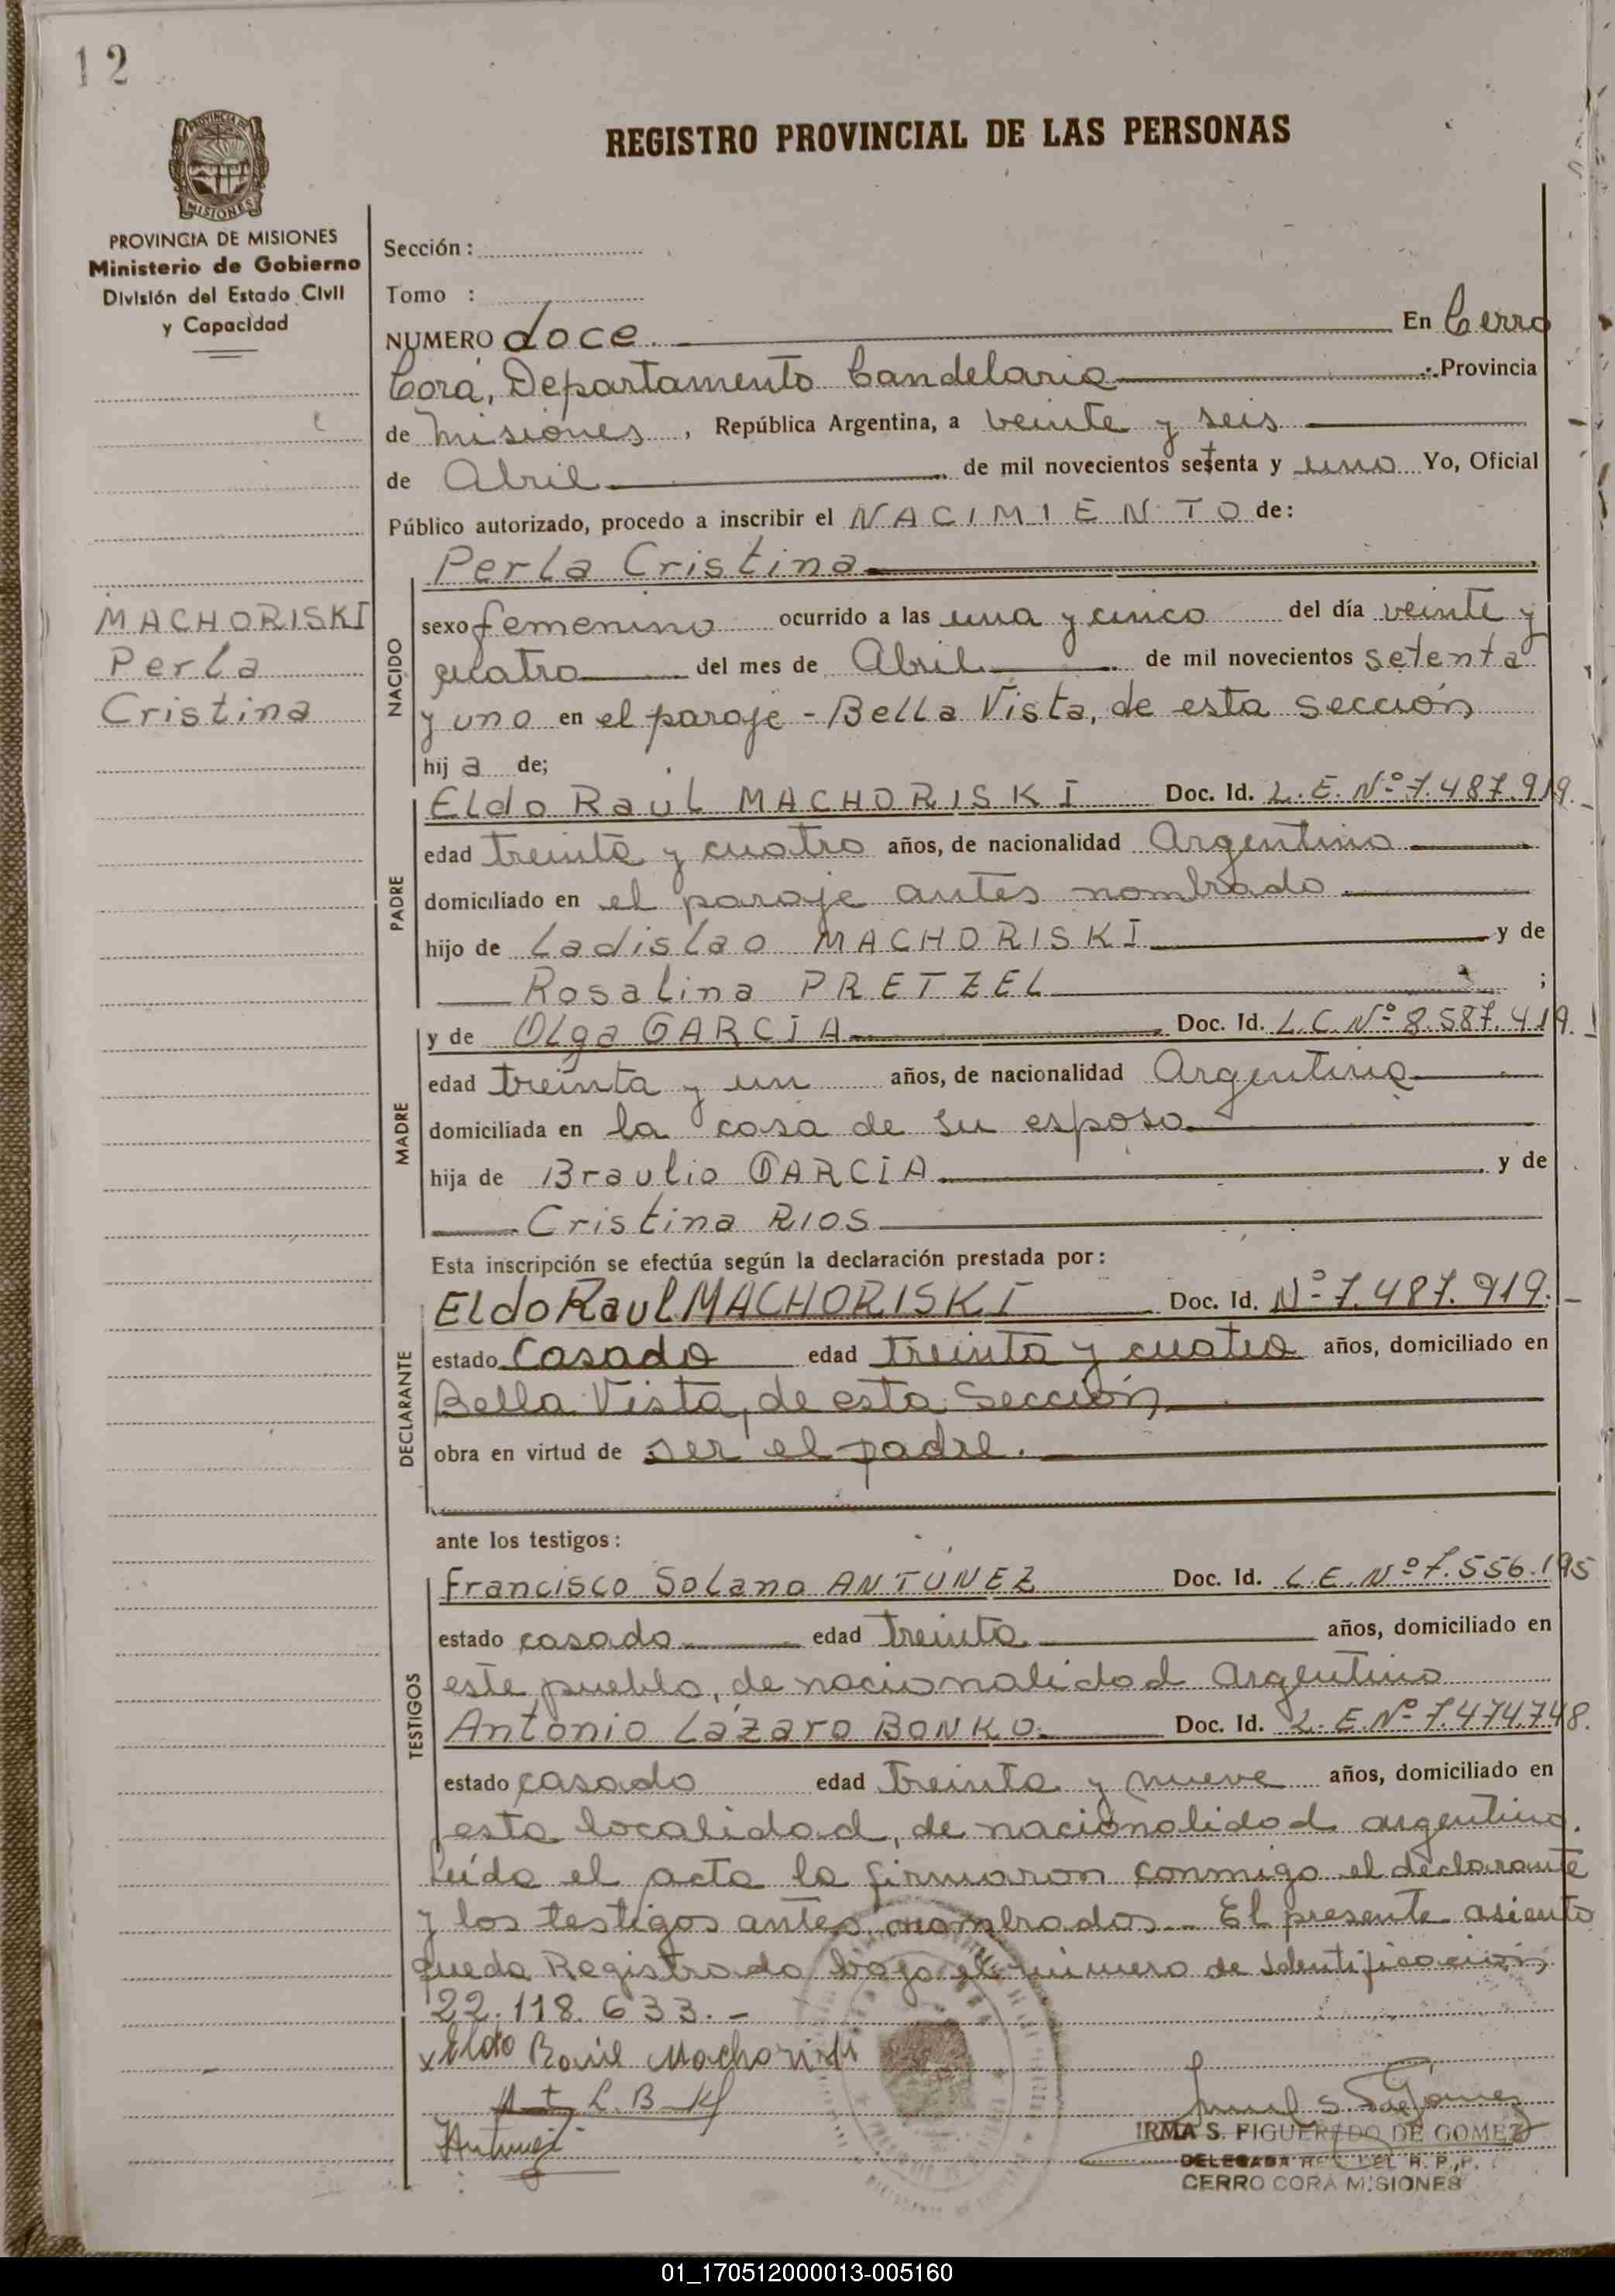 12
REGISTRO PROVINCIAL DE LAS PERSONAS
PROVINCIA DE
MISIONES
PROVINCIA DE MISIONES
Ministerio de Gobierno
División del Estado Civil
y Capacidad
Sección :
Tomo :
NUMERO doce. En Cerro
Corá, Departamento Candelaria Provincia
de Misiones, República Argentina, a veinte y seis
de Abril de mil novecientos setenta y uno Yo, Oficial
Público autorizado, procedo a inscribir el NACIMIENTO de:
Perla Cristina
MACHORISKI
Perla
Cristina
NACIDO
sexo femenino ocurrido a las una y cinco del día veinte y
cuatro del mes de Abril de mil novecientos setenta
y uno en el paraje - Bella Vista, de esta Sección
hij a de;
PADRE
Eldo Raúl MACHORISKI Doc. Id. L. E. Nº 7.487.919.
edad treinta y cuatro años, de nacionalidad Argentino
domiciliado en el paraje antes nombrado
hijo de Ladislao MACHORISKI y de
Rosalina PRETZEL ;
MADRE
y de Olga GARCIA Doc. Id. L.C. Nº 8.587.419.
edad treinta y un años, de nacionalidad Argentina
domiciliada en la casa de su esposo
hija de Braulio GARCIA y de
Cristina RIOS
Esta inscripción se efectúa según la declaración prestada por:
DECLARANTE
Eldo Raul MACHORISKI Doc. Id. Nº 7.487.919.
estado Casado edad treinta y cuatro años, domiciliado en
Bella Vista, de esta Sección
obra en virtud de ser el padre.
ante los testigos:
TESTIGOS
Francisco Solano ANTUNEZ Doc. Id. L.E. Nº 7.556.195
estado casado edad treinta años, domiciliado en
este pueblo, de nacionalidad argentino
Antonio Lázaro BONKO. Doc. Id. L. E. Nº 7.474.748.
estado casado edad treinta y nueve años, domiciliado en
esta localidad, de nacionalidad argentino.
Leída el acta la firmaron conmigo el declarante
y los testigos antes nombrados. El presente asiento
queda Registrado bajo el número de Identificación
22.118.633.-
x Eldo Raúl Machoriski
Antunez
IRMA S. FIGUEREDO DE GOMEZ
DELEGADA DEL R. P. P.
CERRO CORA MISIONES
01_170512000013-005160